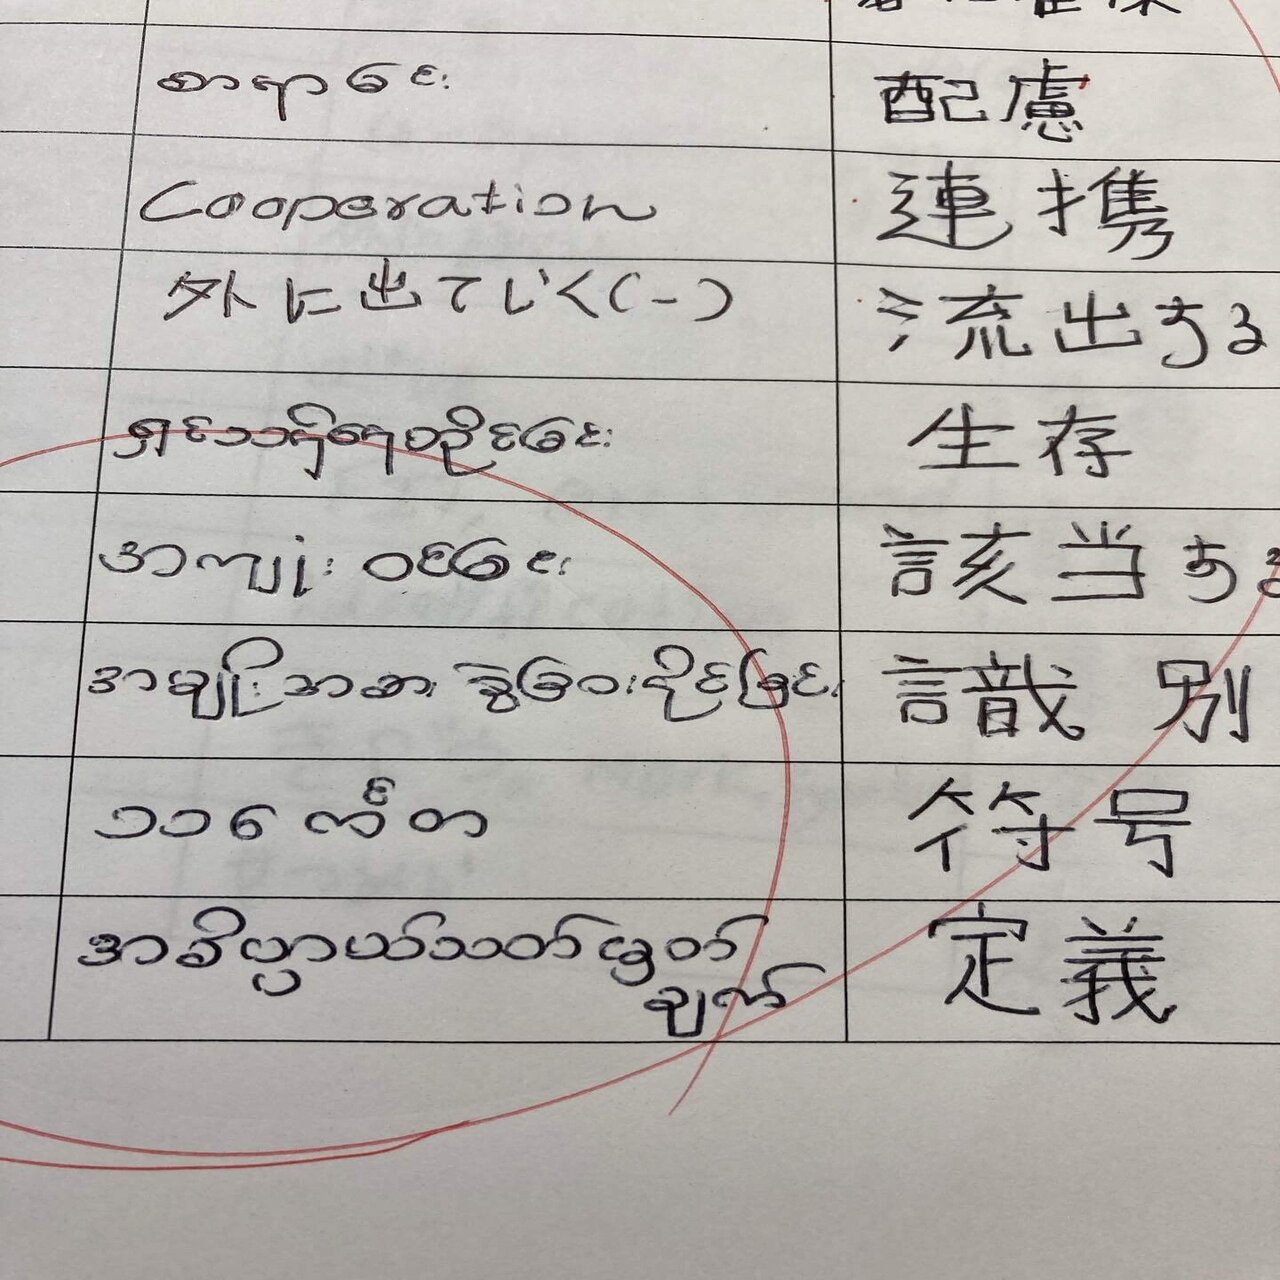 စာရာခင်း 配慮
Cooperation 連携
外に出ていく(-) 流出する
ရှင်သန်ရေစဉိုင်ခြင်း 生存
အကျုံးဝင်ခြင်း 該当する
အမျိုးအစား ခွဲခြားနိုင်ခြင်း 識別
သင်္ကေတ 符号
အဓိပ္ပာယ်သတ်မှတ် 定義
ချက်